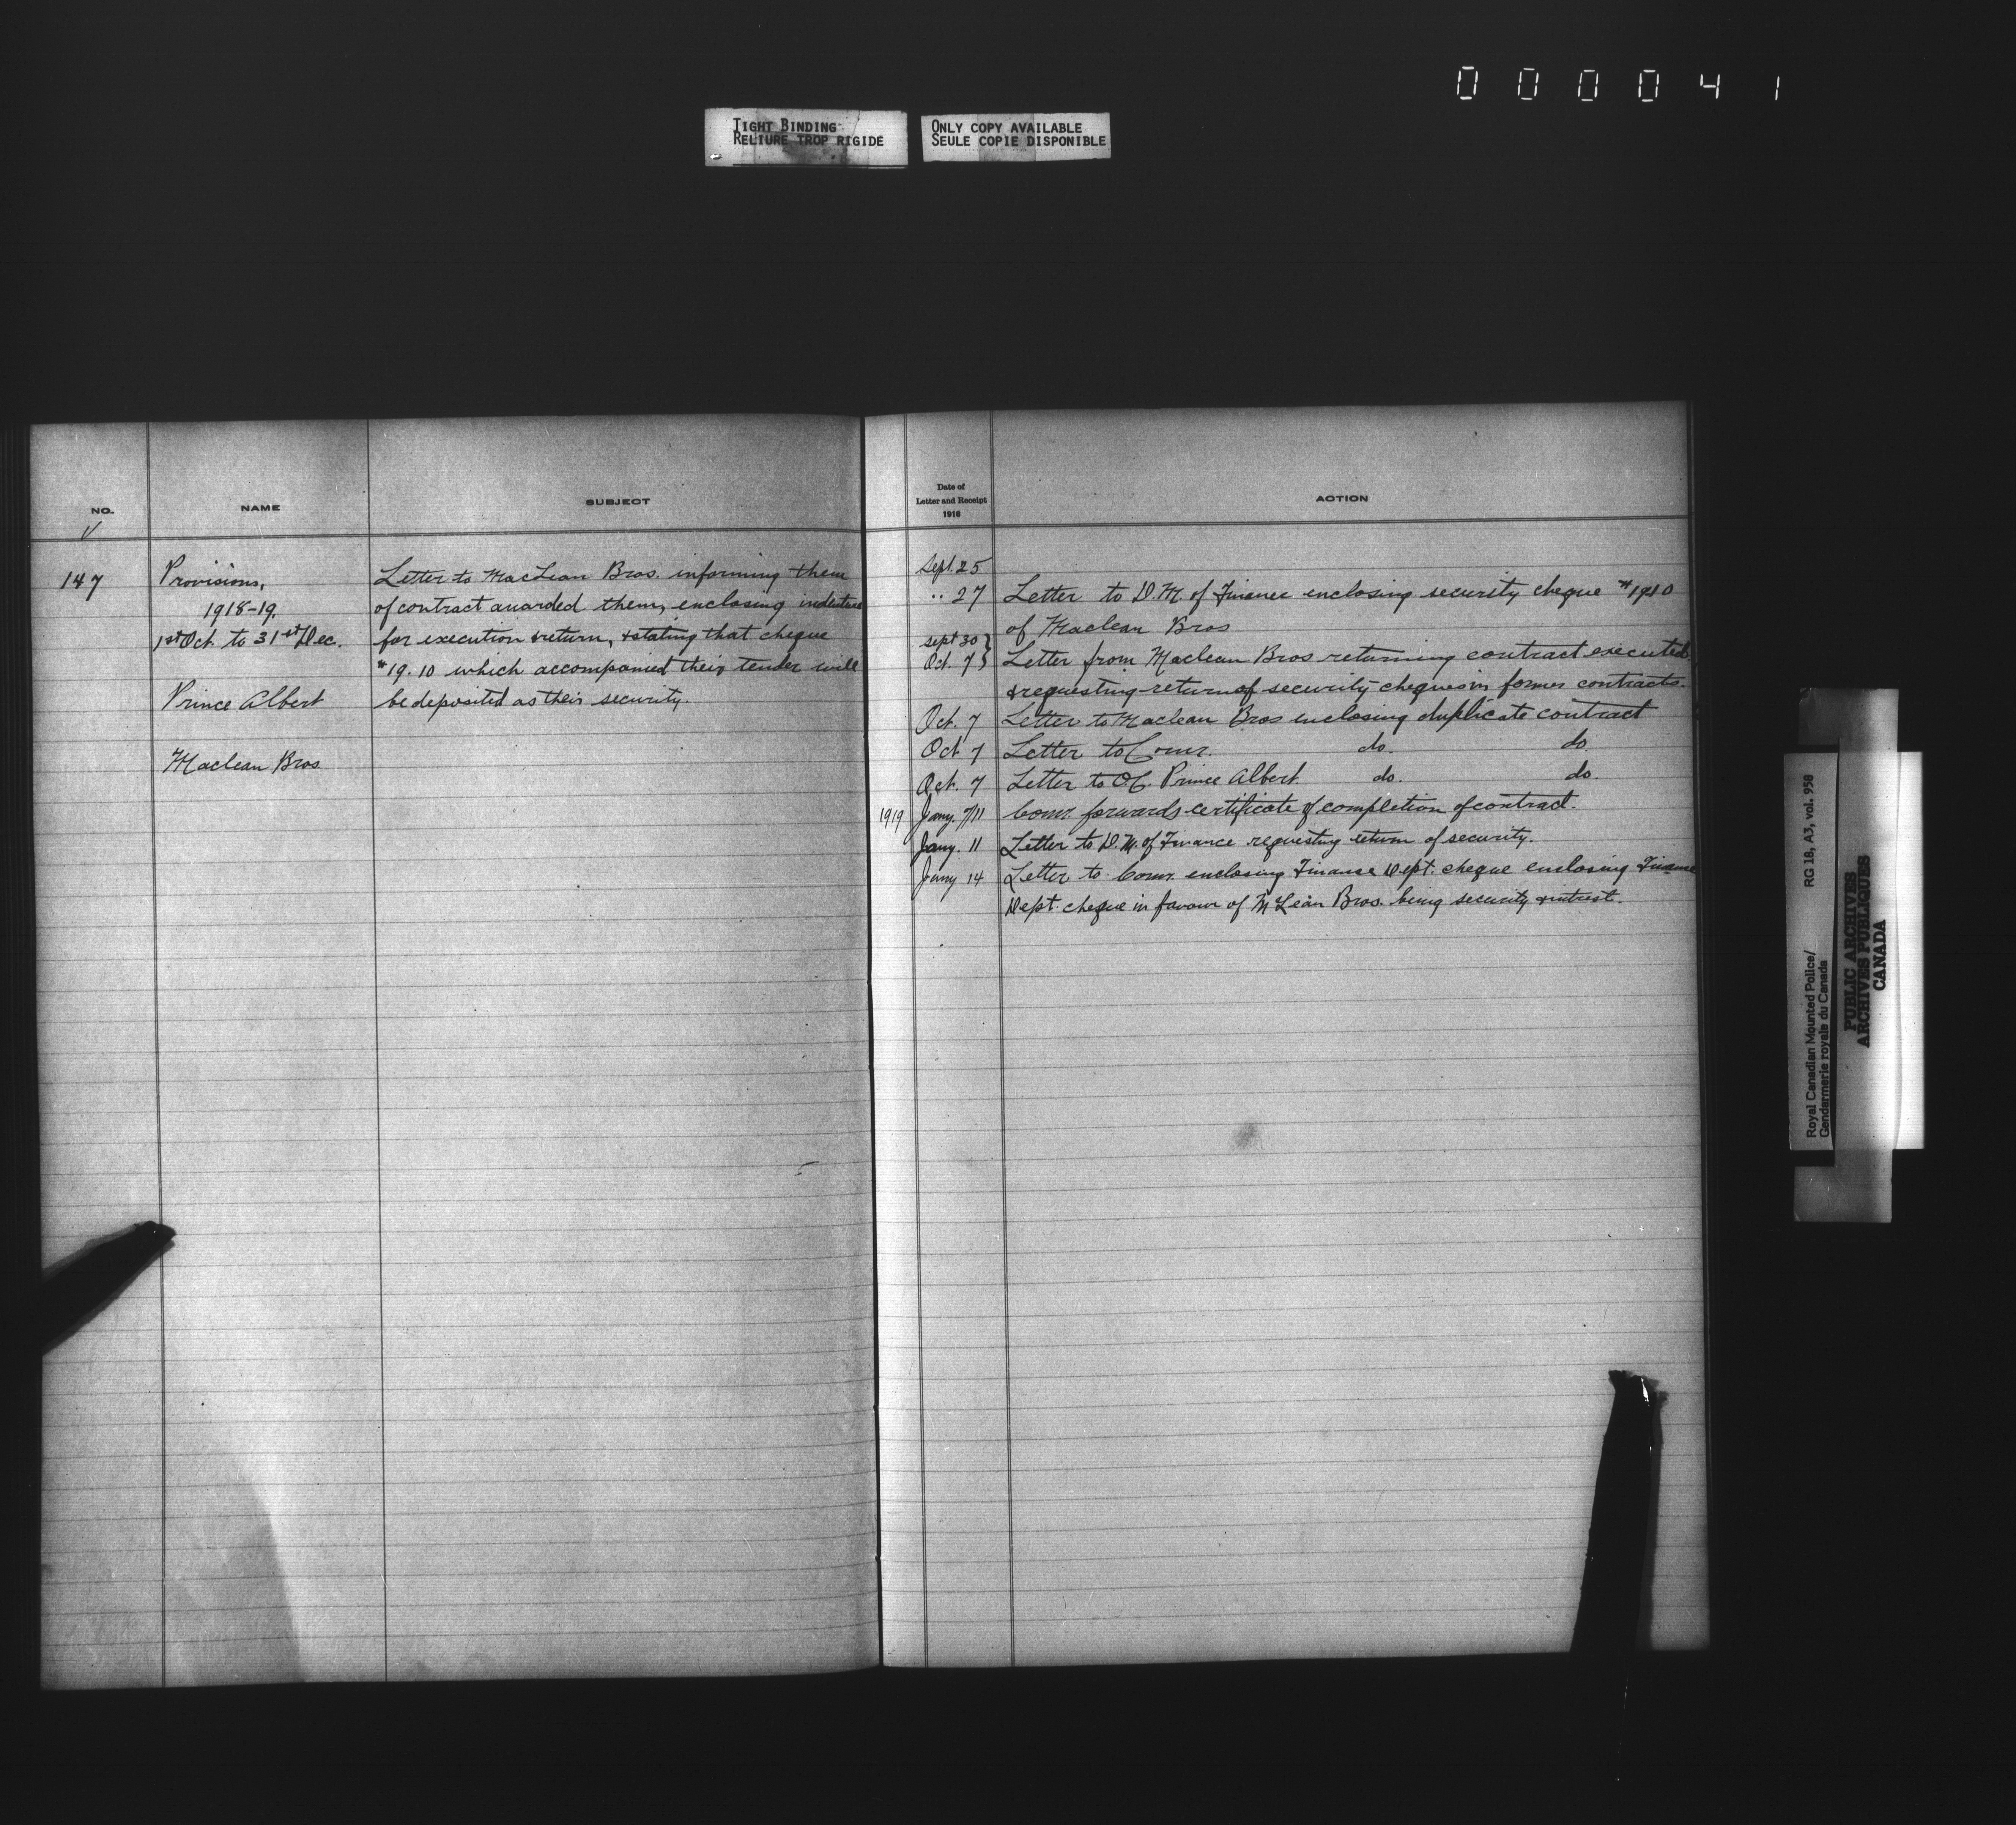 000041
TIGHT BINDING
RELIURE TROP RIGIDE
ONLY COPY AVAILABLE
SEULE COPIE DISPONIBLE
NO.
NAME
SUBJECT
147
Provisions,
1918-19.
1st Oct. to 31st Dec.
Prince Albert
Maclean Bros
Letter to MacLean Bros. informing them
of contract awarded them, enclosing indenture
for execution & return, & stating that cheque
#19.10 which accompanied their tender will
be deposited as their security.
Date of
Letter and Receipt
1918
ACTION
Sept. 25
.. 27 Letter to D.M. of Finance enclosing security cheque #1910
of Maclean Bros
Sept 30 }
Oct. 7 } Letter from Maclean Bros returning contract executed
& requesting return of security cheques in former contracts.
Oct. 7 Letter to Maclean Bros enclosing duplicate contract
Oct 7 Letter to Comr. do. do.
Oct. 7 Letter to O.C. Prince Albert do. do.
1919 Jany. 7/11 Comr. forwards certificate of completion of contract.
Jany. 11 Letter to D.M. of Finance requesting return of security.
Jany 14 Letter to Comr. enclosing Finance Dept. cheque enclosing Finance
Dept. cheque in favour of McLean Bros. being security & intrest.
Royal Canadian Mounted Police/
Gendarmerie royale du Canada
RG 18, A3, vol. 958
PUBLIC ARCHIVES
ARCHIVES PUBLIQUES
CANADA